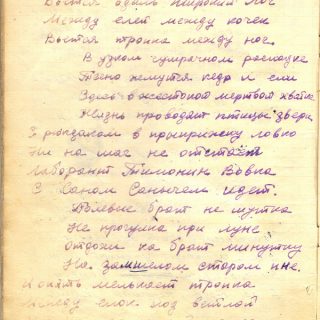 Вьётся вдаль широкий лог
Между елей между кочек
Вьется тропка между ног.
В узком сумрачном распадке
Тесно жмутся кедр и ели
Здесь в жестокой мертвой хватке
Жизнь проводят птицы звери
З рюкзаком в припрыжку ловко
Ни на шаг не отстаёт
Лаборант Тимонин Вовка
С Саном Санычем идет.
Полевые брат не шутка
Не прогулка при луне
Отдохни ка брат минутку
На замшелом старом пне.
И опять мелькает тропка
Между елок под ветлой